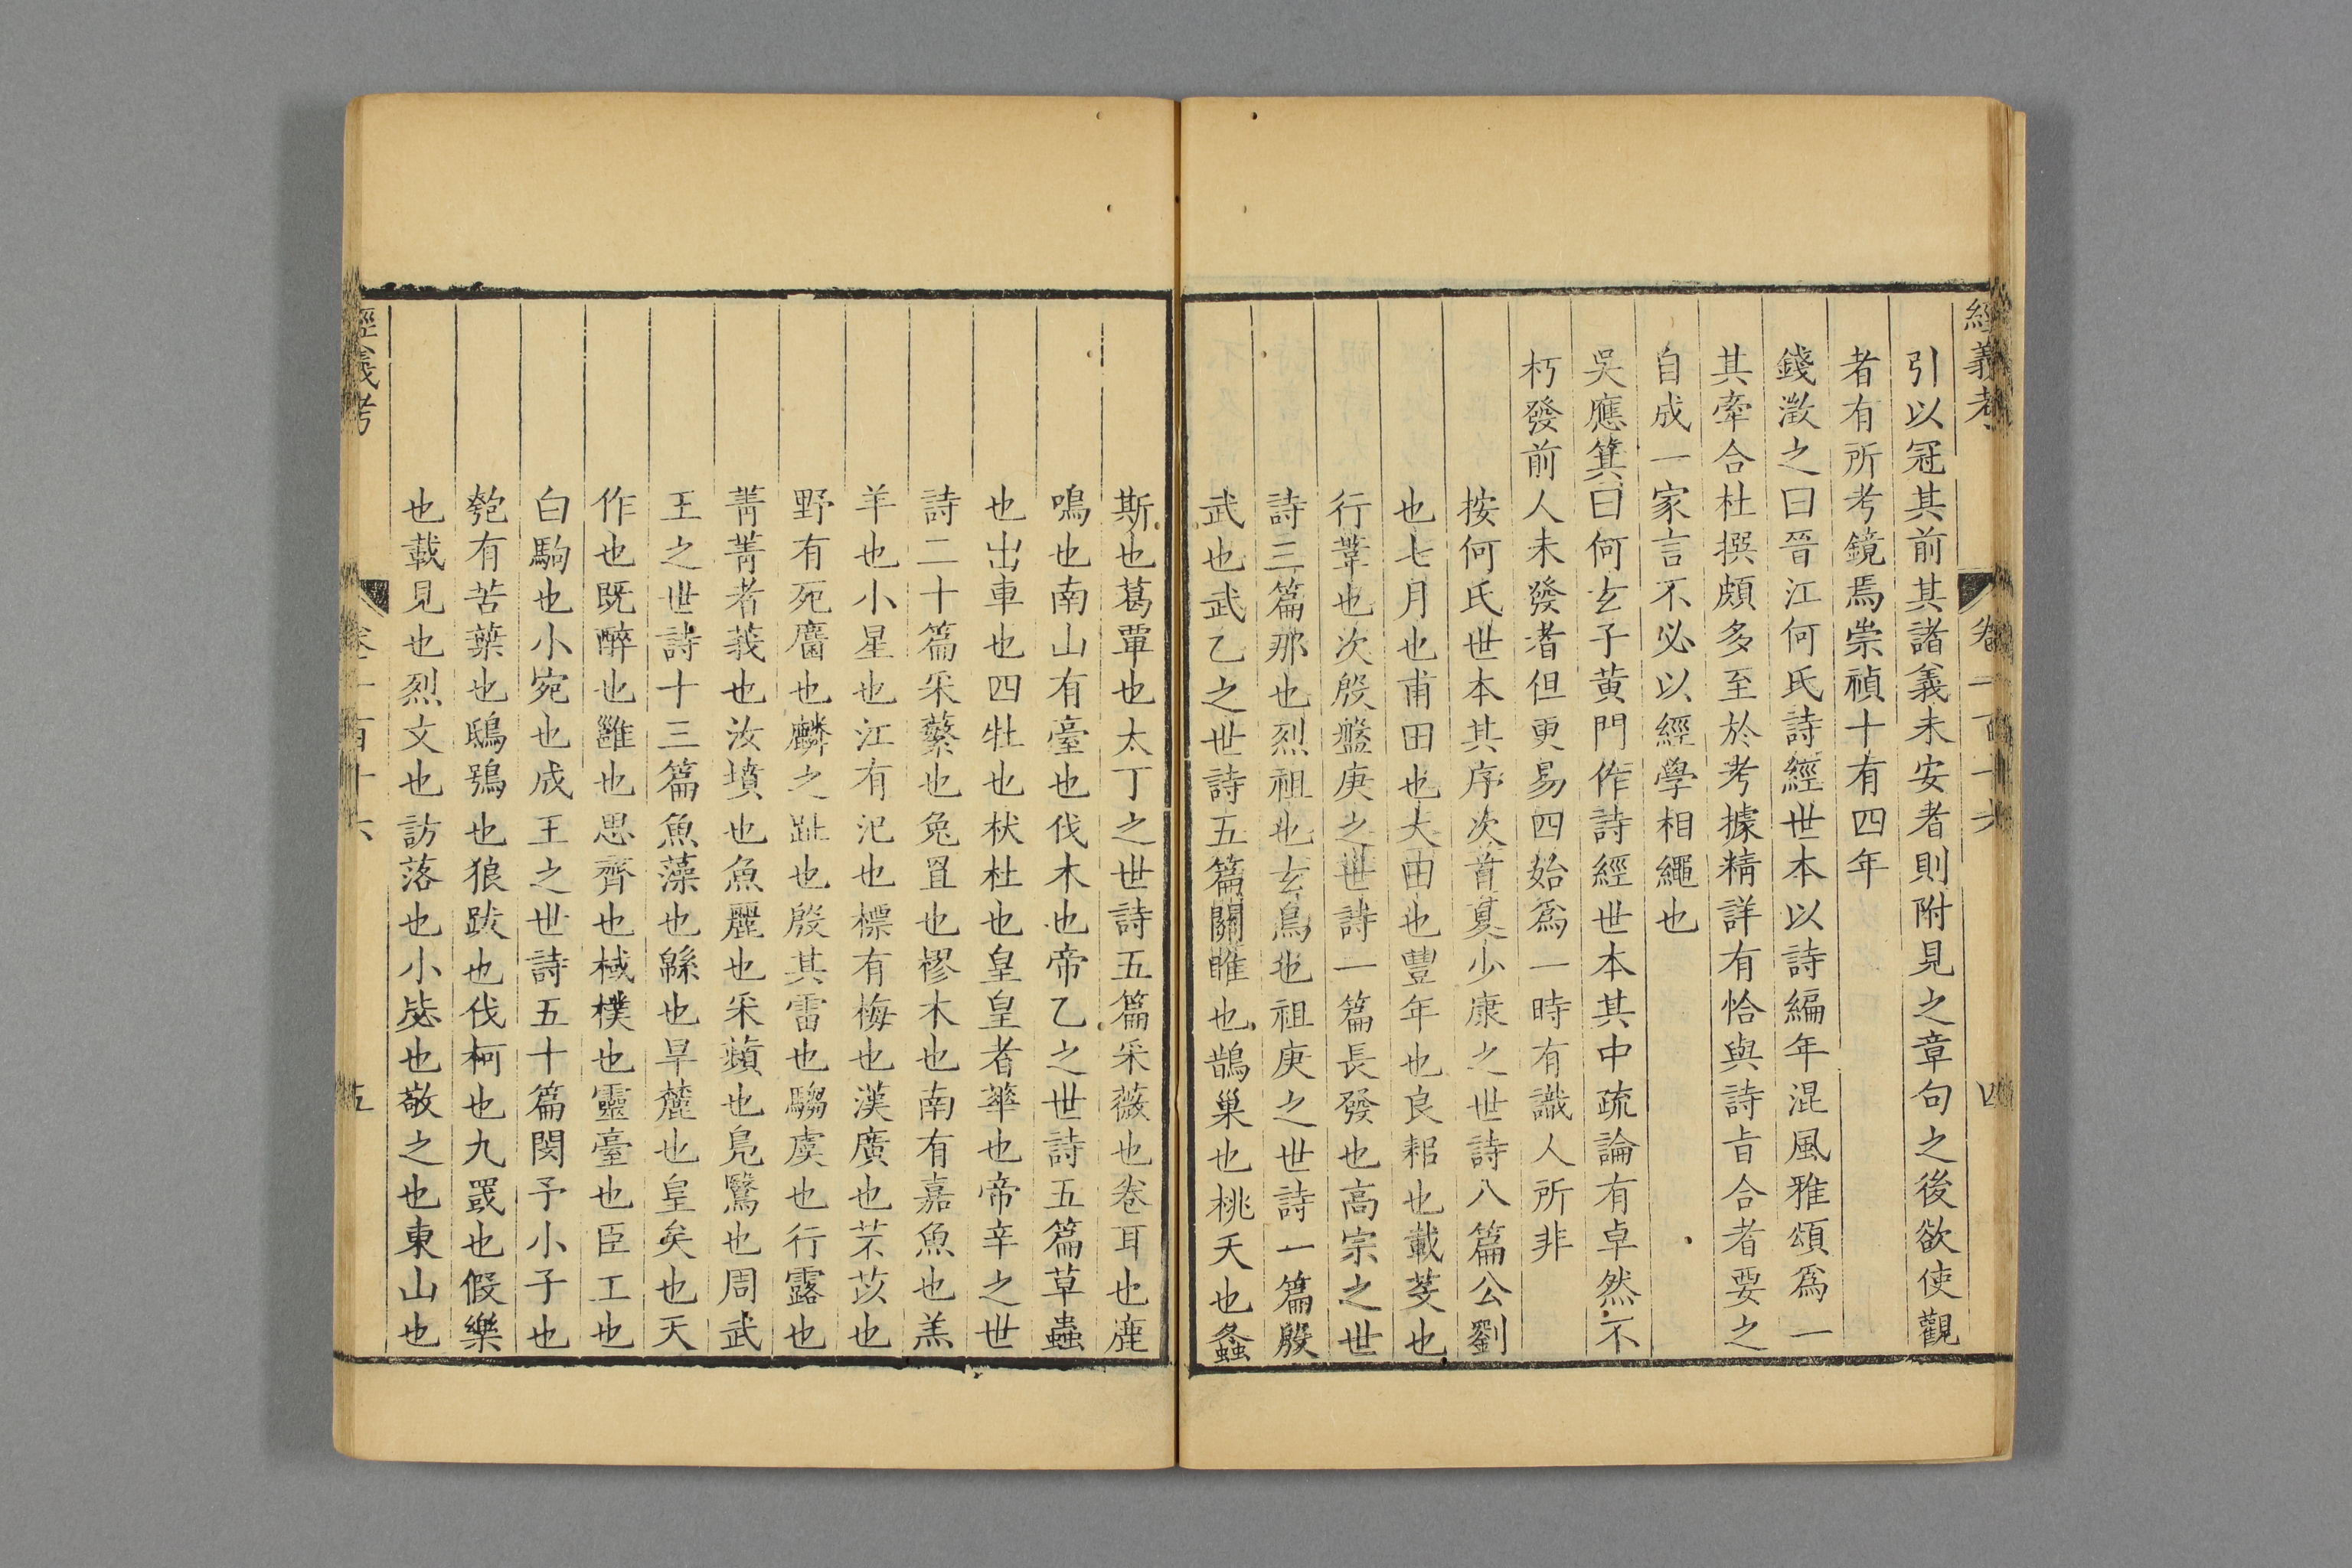 經義考 卷一百十六 四
引以冠其前其諸義未安者則附見之章句之後欲使觀
者有所考鏡焉崇禎十有四年
錢澂之曰晉江何氏詩經世本以詩編年混風雅頌爲一
其牽合杜撰頗多至於考據精詳有恰與詩旨合者要之
自成一家言不必以經學相繩也
吳應箕曰何玄子黃門作詩經世本其中疏論有卓然不
朽發前人未發者但更易四始爲一時有識人所非
按何氏世本其序次首夏少康之世詩八篇公劉
也七月也甫田也大田也豐年也良耜也載芟也
行葦也次殷盤庚之世詩一篇長發也高宗之世
詩三篇那也烈祖也玄鳥也祖庚之世詩一篇殷
武也武乙之世詩五篇關睢也鵲巢也桃夭也螽
斯也葛覃也太丁之世詩五篇采薇也卷耳也鹿
鳴也南山有臺也伐木也帝乙之世詩五篇草蟲
也出車也四牡也杕杜也皇皇者華也帝辛之世
詩二十篇采蘩也兔罝也樛木也南有嘉魚也羔
羊也小星也江有汜也標有梅也漢廣也芣苡也
野有死麕也麟之趾也殷其雷也騶虞也行露也
菁菁者莪也汝墳也魚麗也采蘋也鳧鷖也周武
王之世詩十三篇魚藻也緜也旱麓也皇矣也天
作也既醉也雝也思齊也棫樸也靈臺也臣工也
白駒也小宛也成王之世詩五十篇閔予小子也
匏有苦葉也鴟鴞也狼跋也伐柯也九罭也假樂
也載見也烈文也訪落也小毖也敬之也東山也
經義考 卷一百十六 五